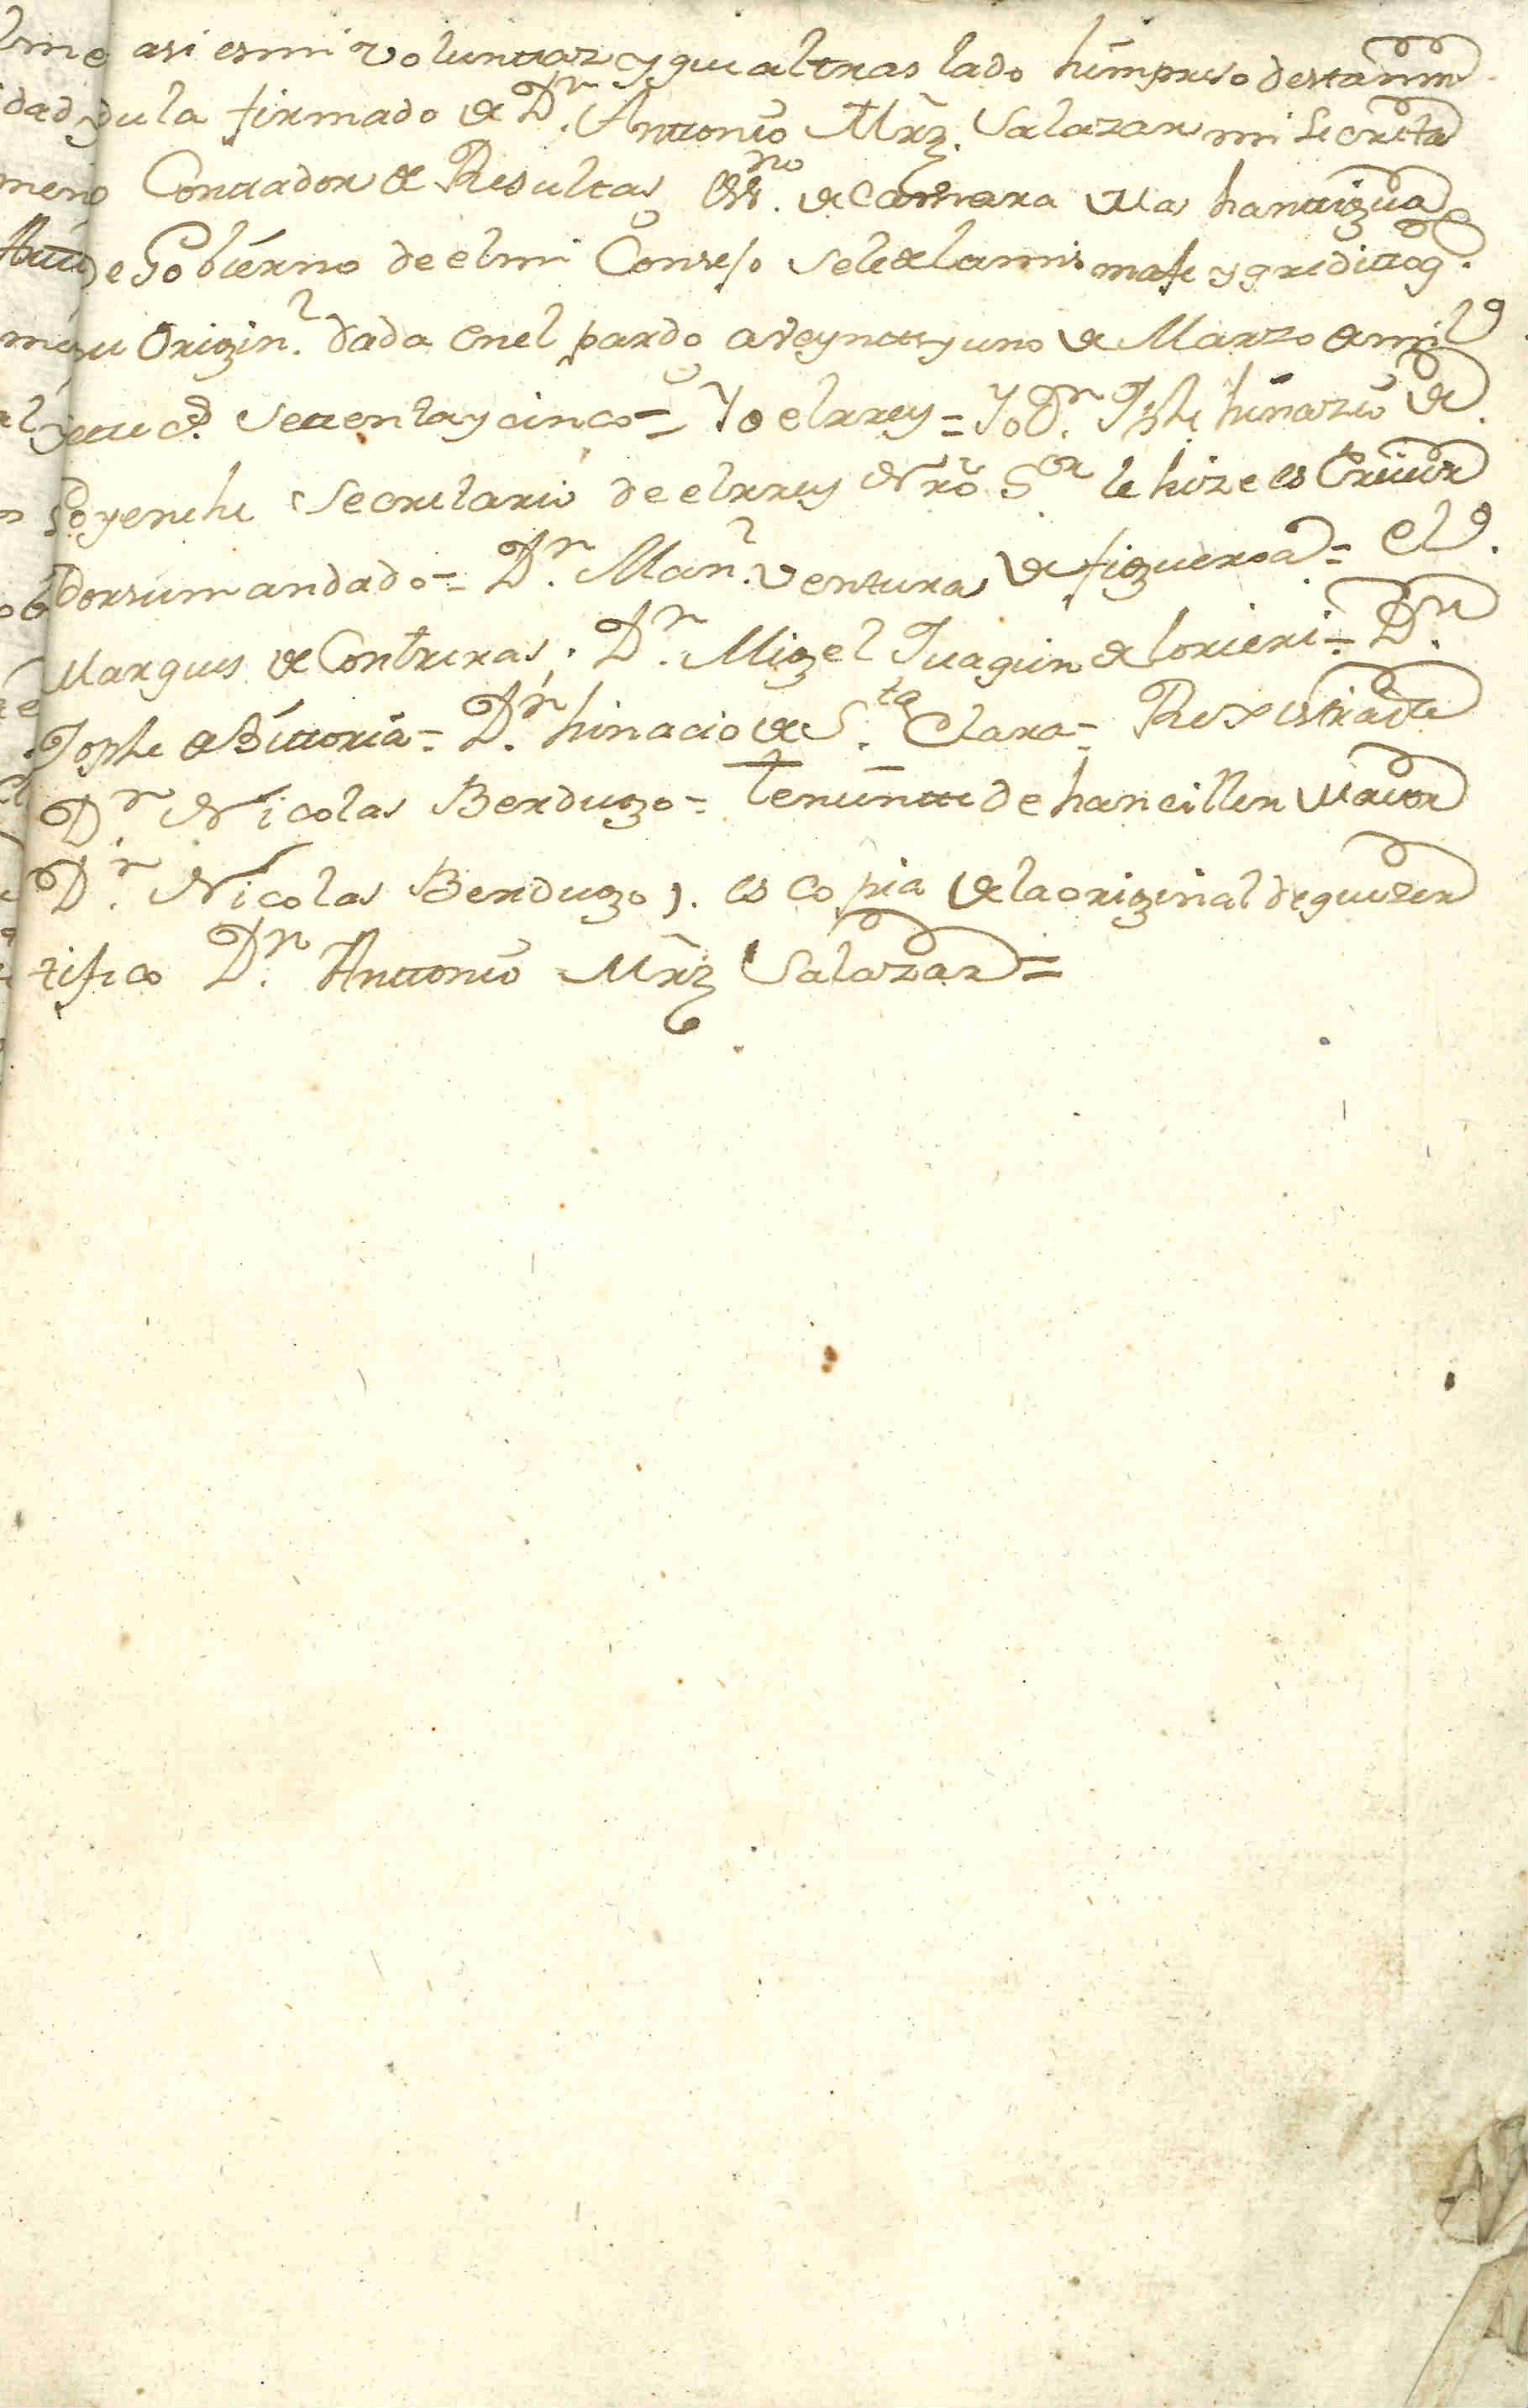 asi es mi voluntaz y que al tras lado himpreso desta mi
dula firmado de Dn. Anttonio Mrz. Salazar mi Secreta
Conttador de Resulttas Essno. de Camara mas hanttigua
de Gobierno de el mi Consejo sele de la mis ma fe y greditto q.
su Origin.l dada en el pardo a veyntte y uno de Marzo de mil
sette cs. Settenta y cinco = Yo el rrey = Yo Dn. Jphe hinazio de
Goyeneche Secretario de el rrey Nro Sor le hize es Criuir
Por su mandado = Dn. Man.l ventura de figueroa = El
Marques de Contreras. Dn. Migel Juaquin de lorieri = Dn.
Josphe de Bittoria = Dn. hinacio de S.ta Clara = Rexistrada
Dn. Nicolas Berdugo = tenientte de hanciller maior
Dn. Nicolas Berdugo). es copia de la original de que zer
tifico Dn. Anttonio Mrz Salazar =